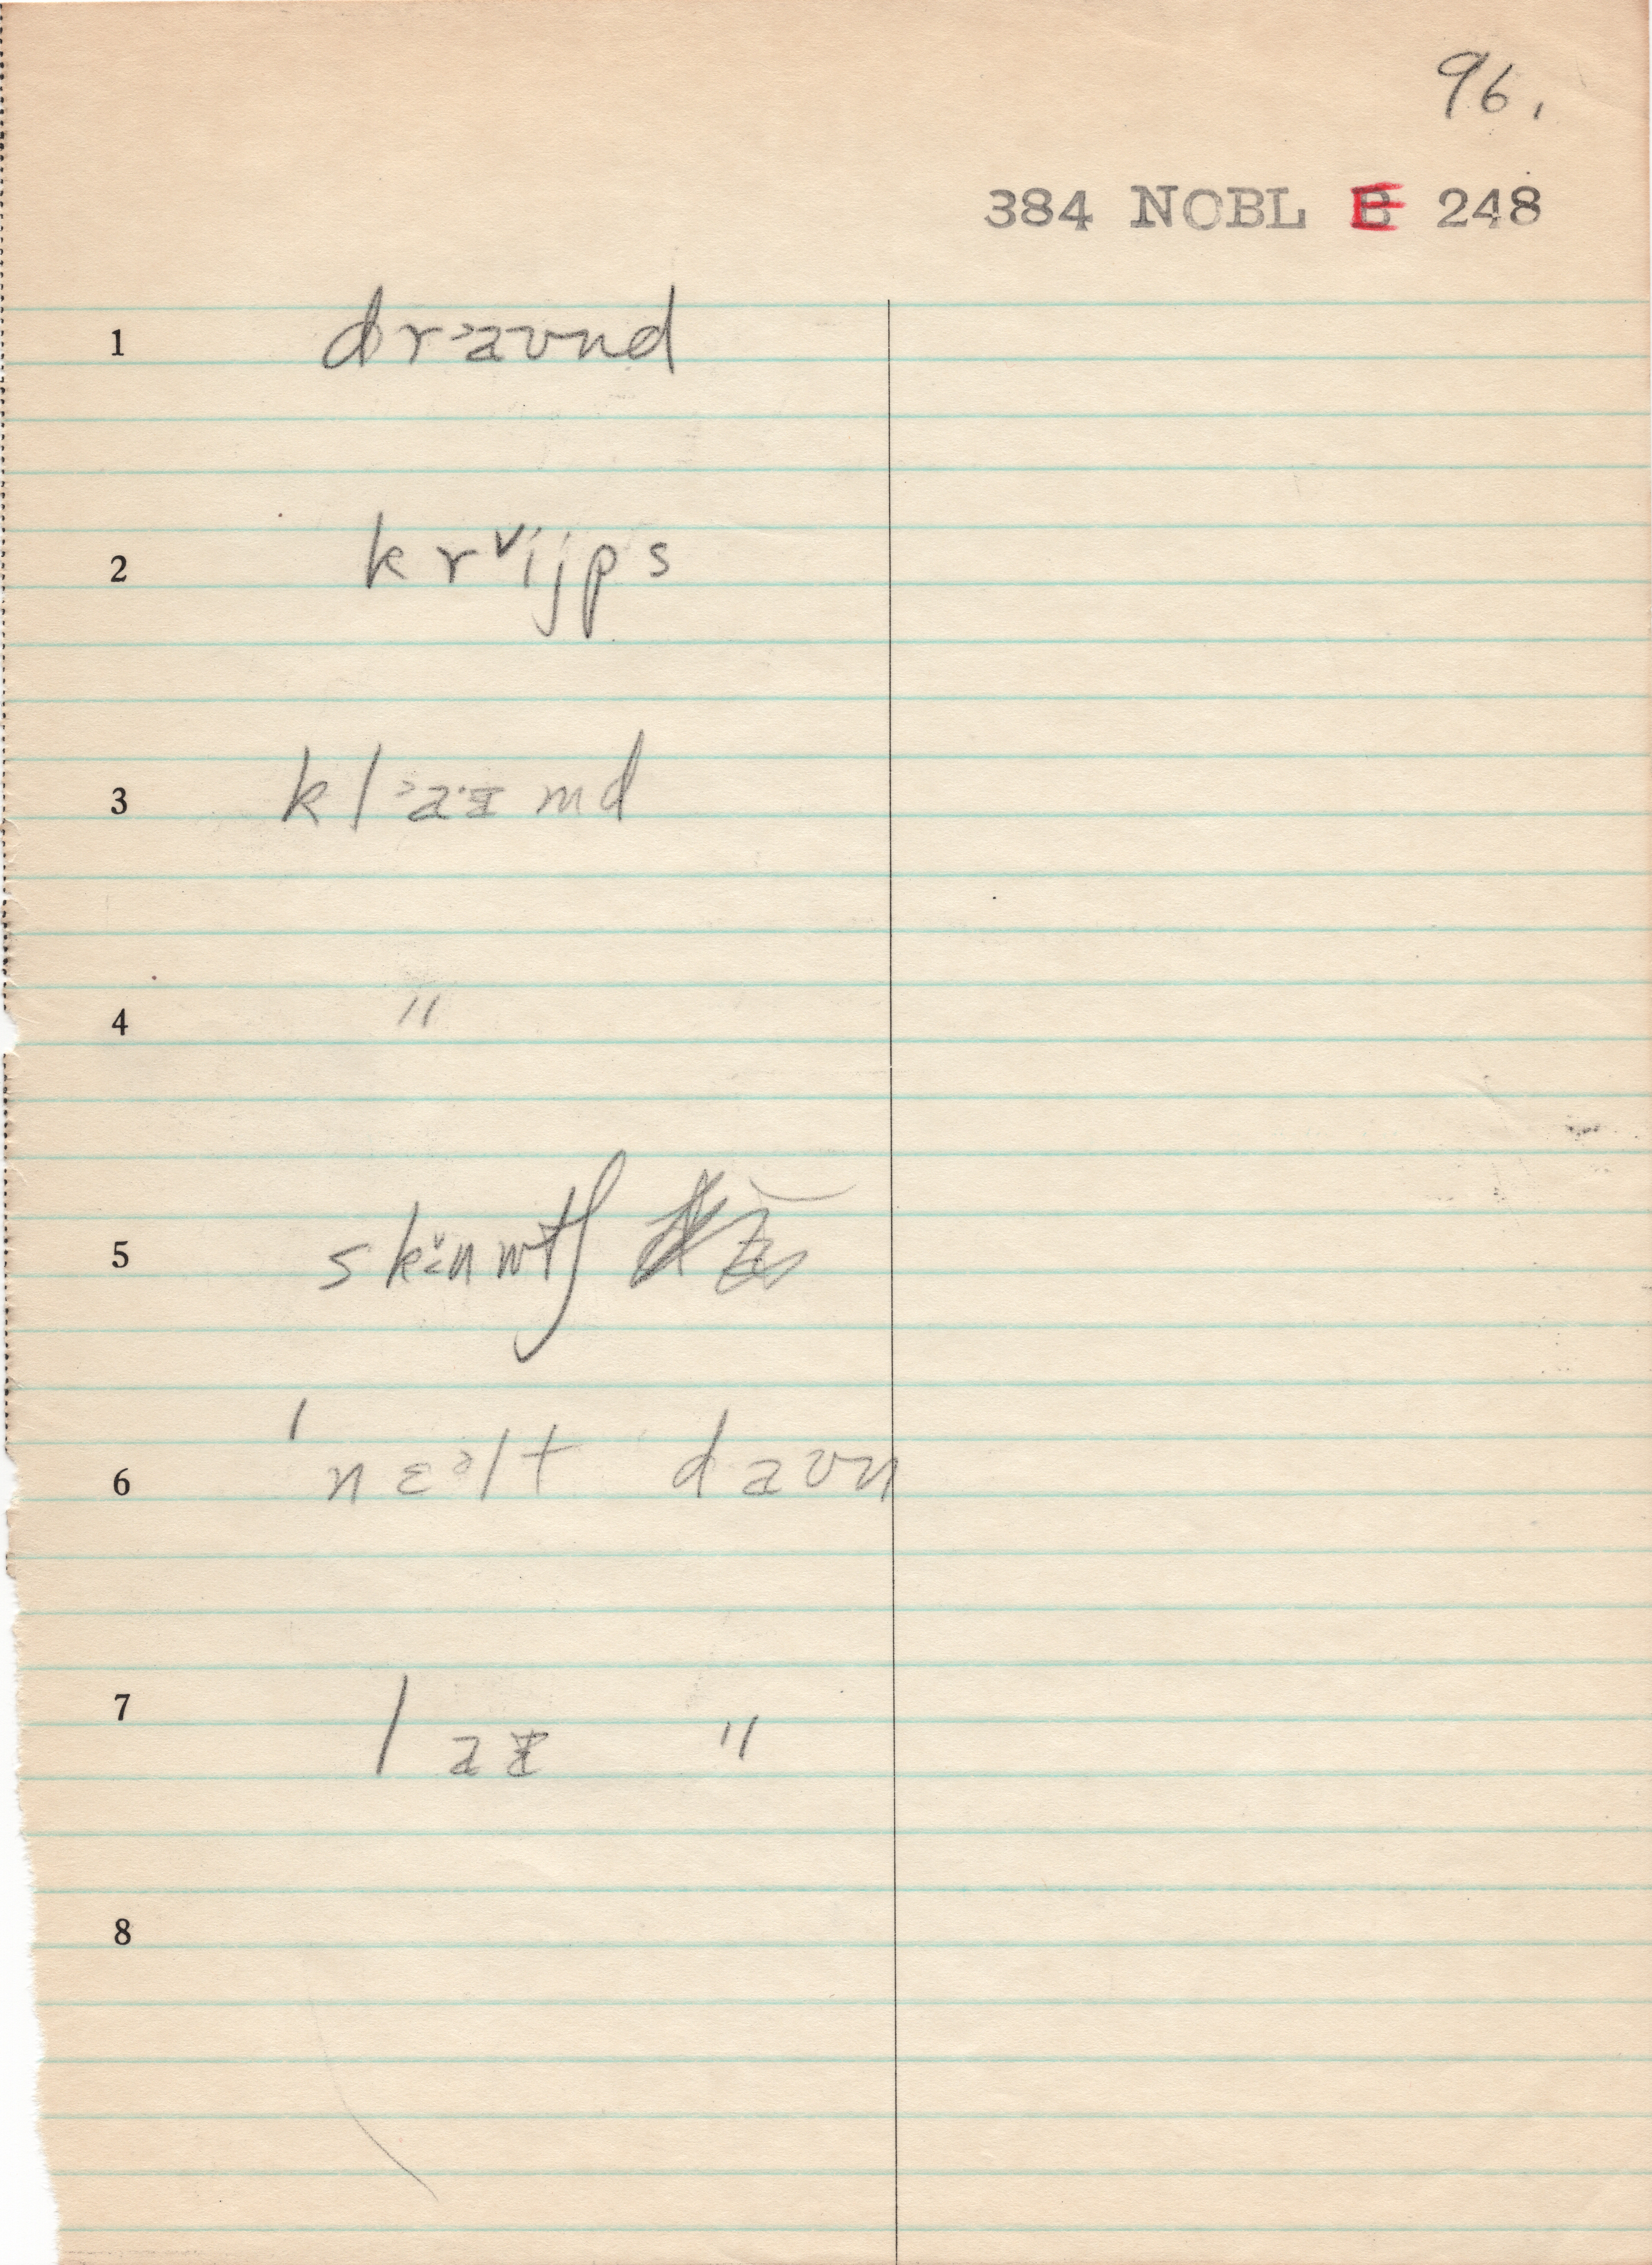 96.
384 NOBL E 248
1 dr˃aʊnd
2 kr˅ijps
3 kl˃a·ɪmd
4 "
5 skɪ̌nnɪtʃ
6 ˈnɛᵊlt daʊn
7 laɪ "
8